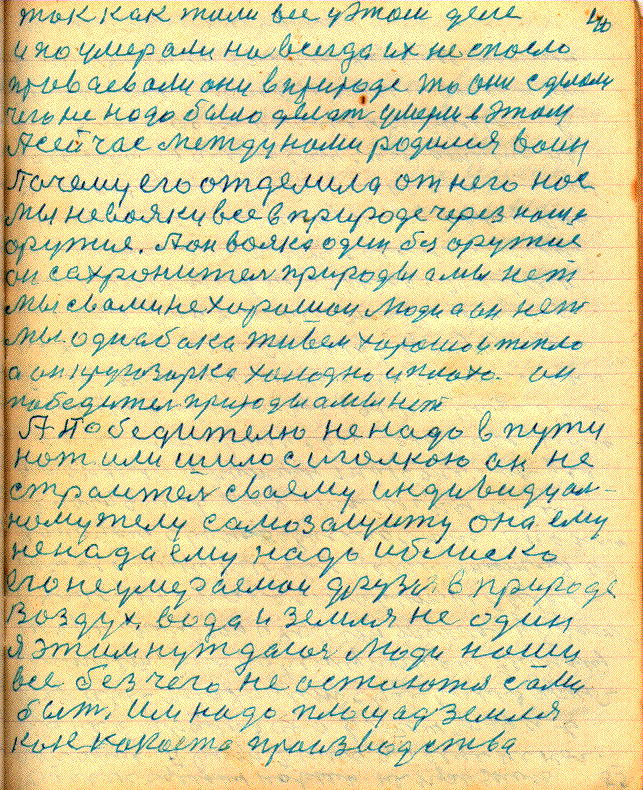 так как жили все у этом деле
и по умерали на всегда их не спасло
40
они в природе то они сделали
чего не надо было делат умерли в этом
А сейчас между нами родился воин
Почему его отделила от него нас
мы не вояки все в природе через наше
оружие. А он вояка один без оружие
он сахронител природы а мы нет
мы с вами не хорошои люди а он нет
мы однабака живем хорошо и тепло
а он холодно и плохо. он
победител природы а мы нет
А победителю не надо в пути
нож или шило с иголкою он не
страител своему индивидуал-
ному телу самозащиту она ему
не нада ему надо и близко
его неумераемои друзя в природе
Воздух, вода и земля не один
я этим нуждался люди наши
все без чего не остаются сами
быт. Им надо площад земля
как какоето производства